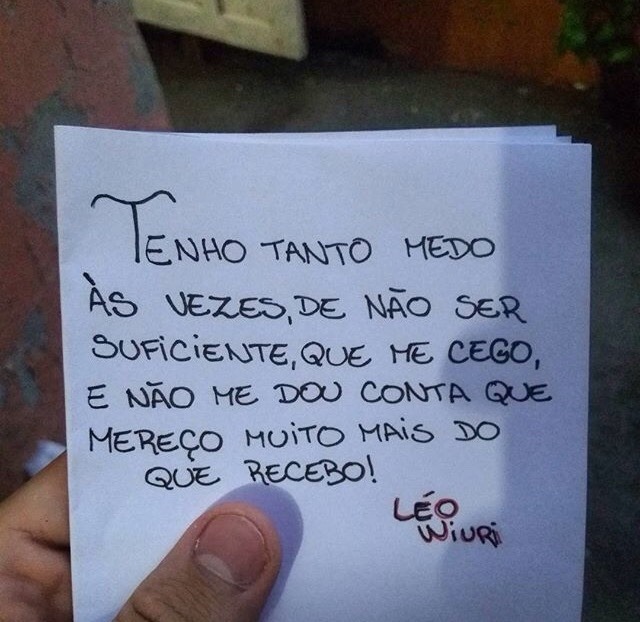 TENHO TANTO MEDO
ÀS VEZES, DE NÃO SER
SUFICIENTE, QUE ME CEGO,
E NÃO ME DOU CONTA QUE
MEREÇO MUITO MAIS DO
QUE RECEBO!
LÉO
WIURI